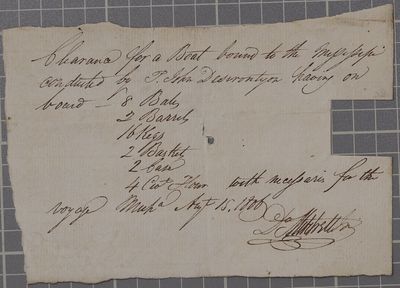 Clearance for a Boat bound to the Missisipi
conducted by J. John having on
board 8 Bales
2 Barrels
16 Kegs
2 Basket
2 Case
4 Cwt. Flour with necessaris for the
voyage Augt 15, 1806